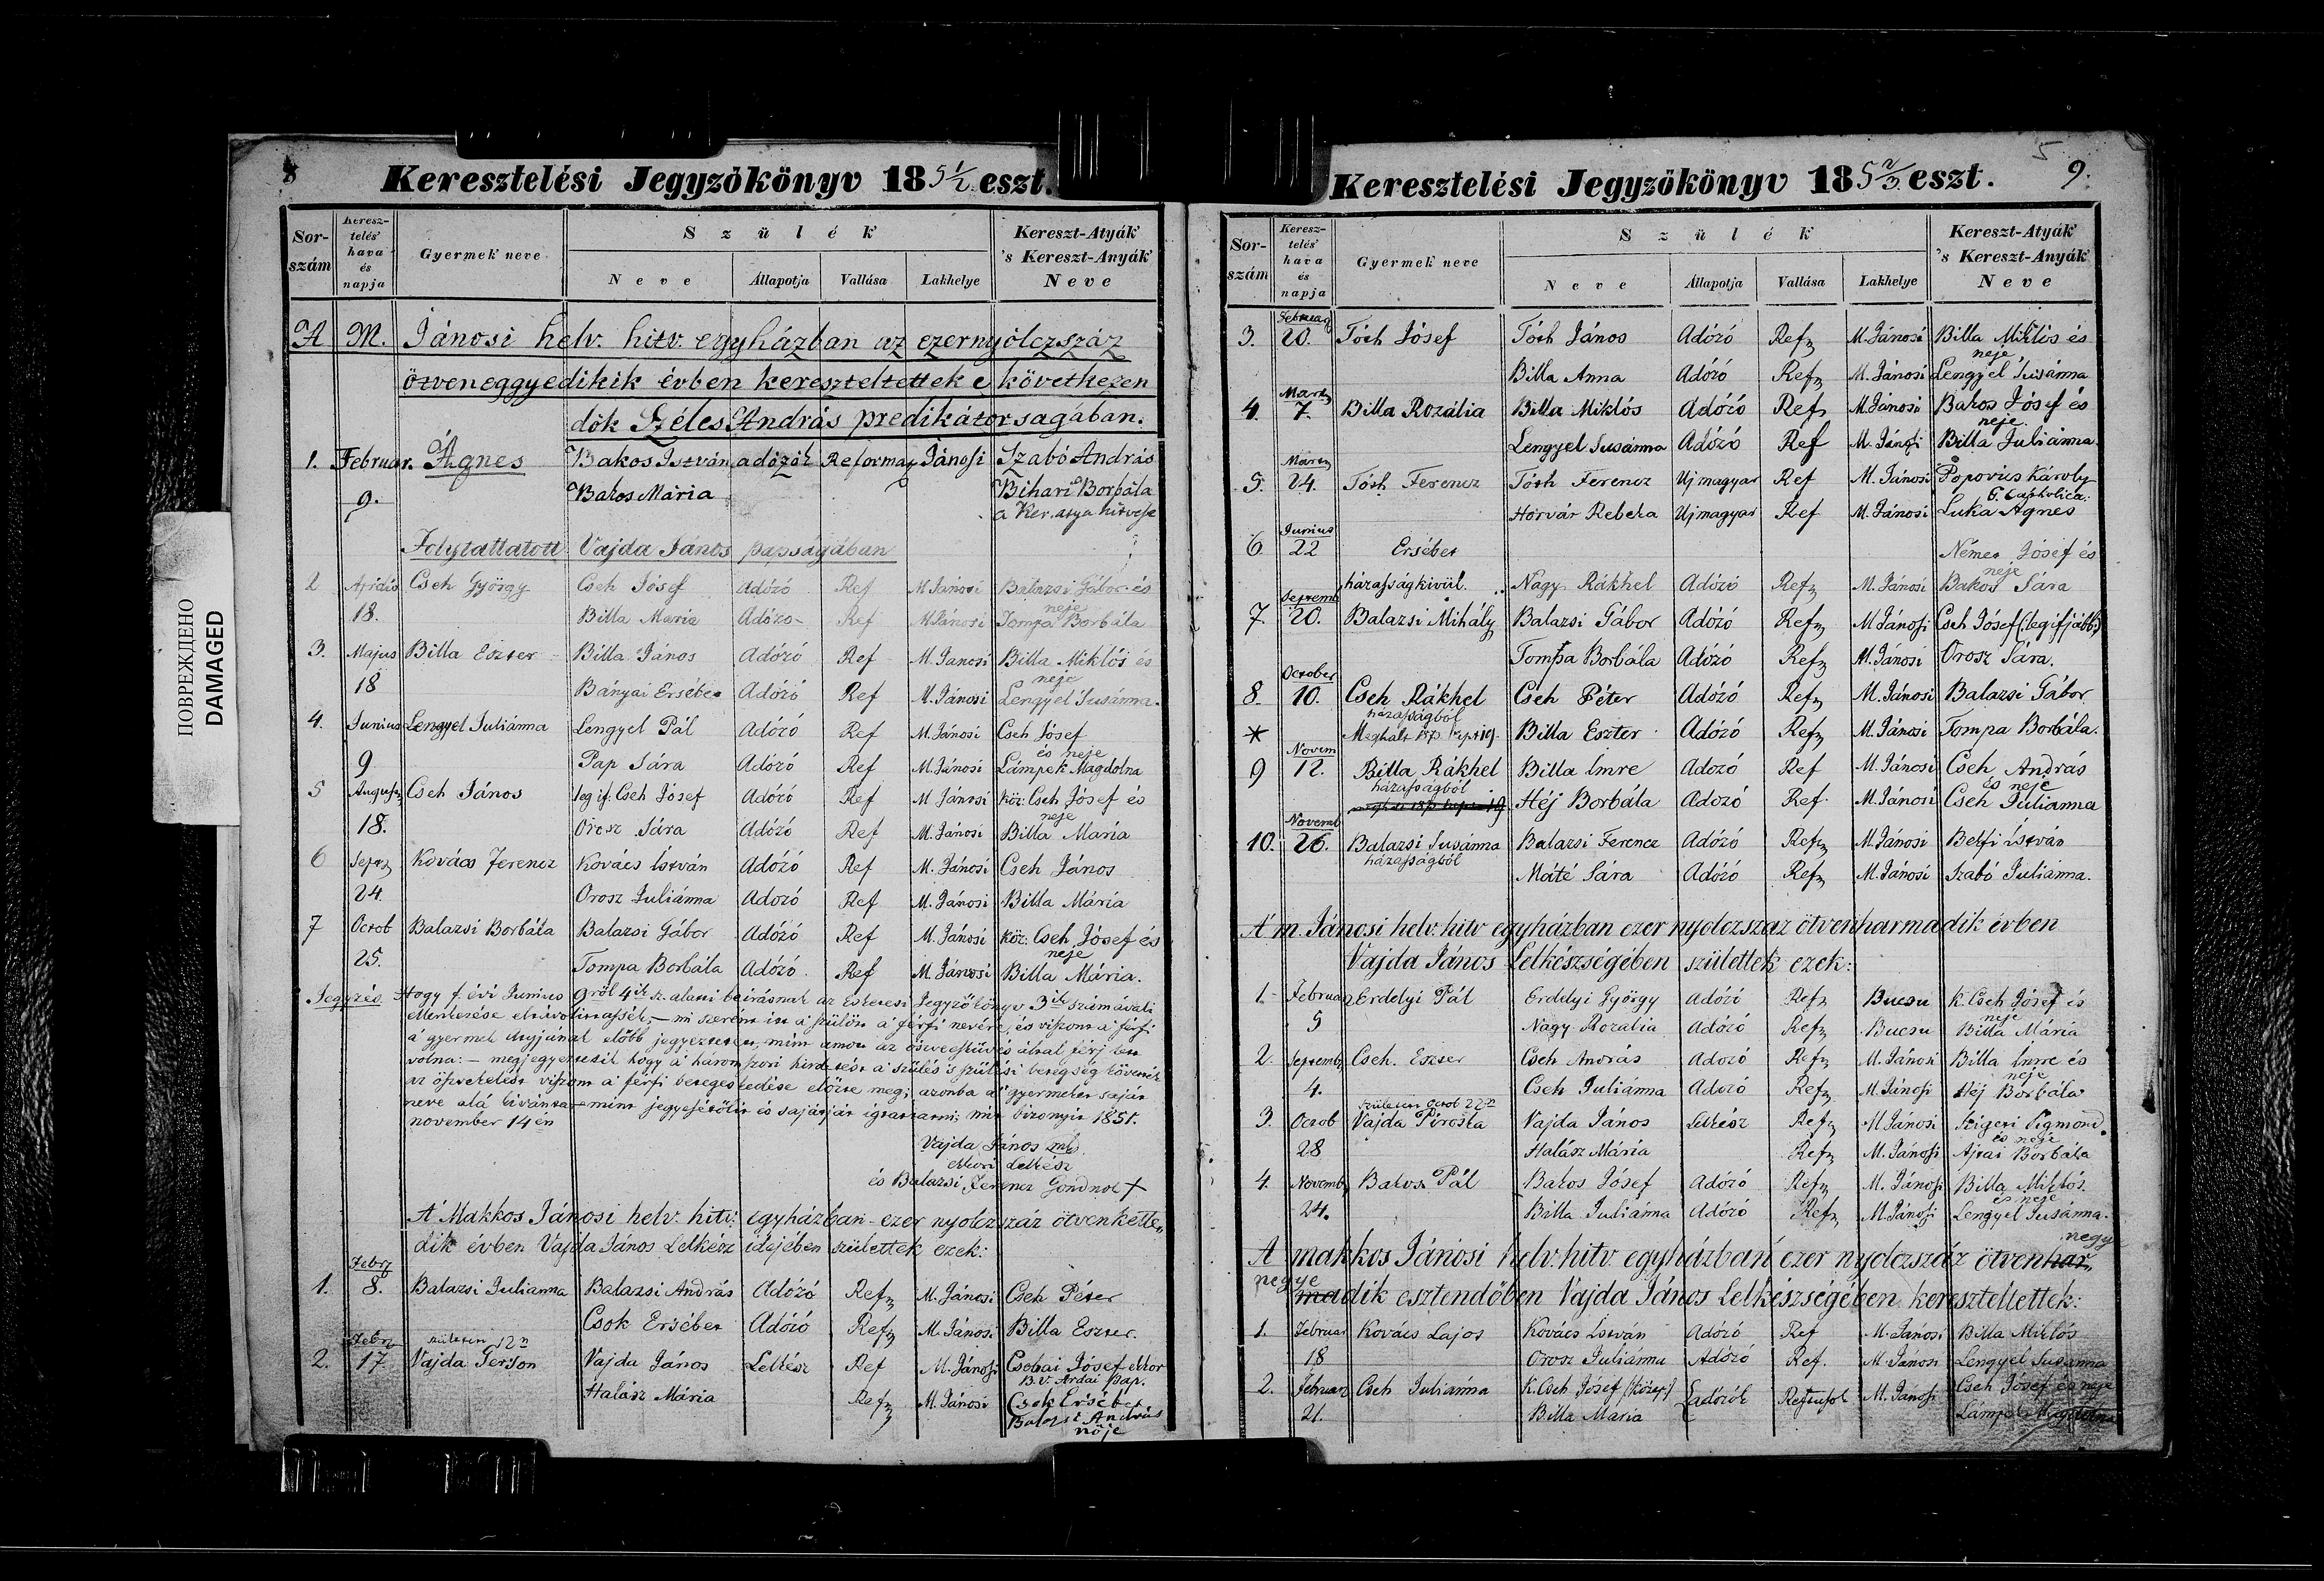 8
Keresztelési Jegyzőkönyv 18 5 1/2 eszt.
Sor-szám
Keresz-telés' hava és napja
Gyermek neve
Szülék
Neve
Állapotja
Vallása
Lakhelye
Kereszt-Atyák 's Kereszt-Anyák Neve
A M. Jánosi helv. hitv. egyházban az ezernyólczszáz
ötveneggyedikik évben kereszteltettek e következen
dők Széles András predikátorságában.
1. Februar. Ágnes Bakos István adózók Reformaz Jánosi Szabó András
9. Bakos Mária Bihari Borbála
a Ker. atya hitvese
Folytattatott Vajda János papságában
2 Aprilis Cseh György Cseh Jósef Adózó Ref M Jánosi Balazsi Gábor és
neje
18. Billa Maria Adózo- Ref M Jánosi Tompa Borbála
3. Majus Billa Eszter Billa János Adózó Ref M. Janosi Billa Miklós és
neje
18 Bányai Ersébet Adózó Ref M. Jánosi Lengyel Susánna.
4. Junius Lengyel Juliánna Lengyel Pál Adózó Ref M. Jánosi Cseh Jósef
és neje
9 Pap Sára Adózó Ref M. Jánosi Lámpek Magdolna
5 August Cseh János leg if: Cseh Jósef Adózó Ref M Jánosi Köz: Cseh Jósef és
neje
18. Orosz Sára Adózó Ref M. Jánosi Billa Maria
6 Sept Kovács Ferencz Kovács István Adózó Ref M. Jánosi Cseh János
24. Orosz Juliánna Adozó Ref M. Jánosi Billa Mária
7 Octob Balazsi Borbála Balazsi Gábor Adózó Ref M. Jánosi Köz: Cseh Jósef és
neje
25. Tompa Borbála Adózó Ref M. Jánosi Billa Mária.
Jegyzés. Hogy f. évi Junius 9ről 4ik sz. alatti beirásnak az esketesi Jegyzőkönyv 3ik számávali
ellenkezése
a gyermek anyjánál előbb jegyeztetett, mint
volna: – megjegyeztetik hogy a háromszori hirdetést a szülés is szülési betegség követék
az öszvekelést viszont a férfi
neve alá
november 14én
Vajda János mk
ekkori Lelkész
és Balazsi Ferencz Gondnok +
A' Makkos Jánosi helv. hitv. egyházban ezer nyolcz száz ötvenkette
dik évben Vajda János Lelkész idejében születtek ezek:
Febr
1. 8. Balazsi Julianna Balazsi András Adózó Ref M. Jánosi Cseh Péter
Csok Ersébet Adózó Ref M. Jánosi Billa Eszter.
Febr született 12n
2. 17. Vajda Gerson Vajda János Lelkész Ref M. Jánosi Csobai Jósef ekkor
B. v. Ardai pap.
Halász Mária Ref M. Jánosi Csok Ersébet
Balazsi András
nője
ПОВРЕЖДЕНО
DAMAGED
5
9.
Keresztelési Jegyzőkönyv 18 5 2/3 eszt.
Sor-szám
Keresz-telés' hava és napja
Gyermek neve
Szülék
Neve
Állapotja
Vallása
Lakhelye
Kereszt-Atyák 's Kereszt-Anyák Neve
Februar
3. 20. Tóth Jósef Tóth János Adózó Ref M. Jánosi Billa Miklós és
neje
Billa Anna Adózó Ref M. Jánosi Lengyel Susánna
Mart
4. 7. Billa Rozália Billa Miklós Adózó Ref M. Jánosi Bakos Jósef és
neje.
Lengyel Susánna Adózó Ref M. Jánosi Billa Juliánna.
Mart
5. 24. Tóth Ferencz Tóth Ferencz Uj magyar Ref M. Jánosi Popovics Károly
Horvár Rebeka Uj magyar Ref M. Jánosi Luka Agnes
Junius
6. 22 Ersébet Német Jósef és
neje
házasságkivül. Nagy Rákhel Adózó Ref M. Jánosi Bakos Sára
Septemb
7. 20. Balazsi Mihály Balazsi Gábor Adózó Ref M Jánosi Cseh Jósef (legifjabb)
Tompa Borbála Adózó Ref M. Jánosi Orosz Sára.
October
8. 10. Cseh Rákhel Cseh Péter Adózó Ref M. Jánosi Balazsi Gábor
házasságból
* Meghalt Billa Eszter Adózó Ref M. Jánosi Tompa Borbála.
Novem
9 12. Billa Rákhel Billa Imre Adozó Ref M. Jánosi Cseh András
házasságból és neje
Héj Borbála Adozó Ref M. Jánosi Cseh Julianna
Novemb
10. 26. Balazsi Susánna Balazsi Ferencz Adózó Ref M. Jánosi Betfi István
házasságból
Máté Sára Adózó Ref M. Jánosi Szabó Juliánna.
A' m. Jánosi helv. hitv egyházban ezer nyolczszaz ötvenharmadik évben
Vajda János Lelkészségében születtek ezek:
1. Februar Erdelyi Pál Erdelyi György Adózó Ref Bucsu K. Cseh Jósef és
neje
5 Nagy Rozalia Adózó Ref Bucsu Billa Mária
2. Septemb Cseh. Eszter Cseh András Adozó Ref M. Jánosi Billa Imre és
neje
4. Cseh Juliánna Adozó Ref M. Jánosi Héj Borbála
született Octob 22n
3. Octob Vajda Piroska Vajda János Lelkész Ref M Jánosi Szigeti Sigmond
és neje
28 Halász Mária Ref M. Jánosi Ajtai Borbála
4. Novemb Bakos Pál Bakos Jósef Adózó Ref M. Jánosi Billa Miklós.
és neje
24. Billa Juliánna Adózó Ref M. Jánosi Lengyel Susanna.
negy
A makkos Jánosi helv. hitv. egyházban ezer nyolczszáz ötvenhar
negye
madik esztendőben Vajda János Lelkészségében kereszteltettek:
1. Februar Kovács Lajos Kovács István Adózó Ref M. Jánosi Billa Miklós
18 Orosz Juliánna Adózó Ref. M. Jánosi Lengyel Susanna
2. Februar Cseh Juliánna K. Cseh Jósef (közép) adózók M. Jánosi Cseh Jósef és neje
21. Billa Maria Lámpek Magdolna